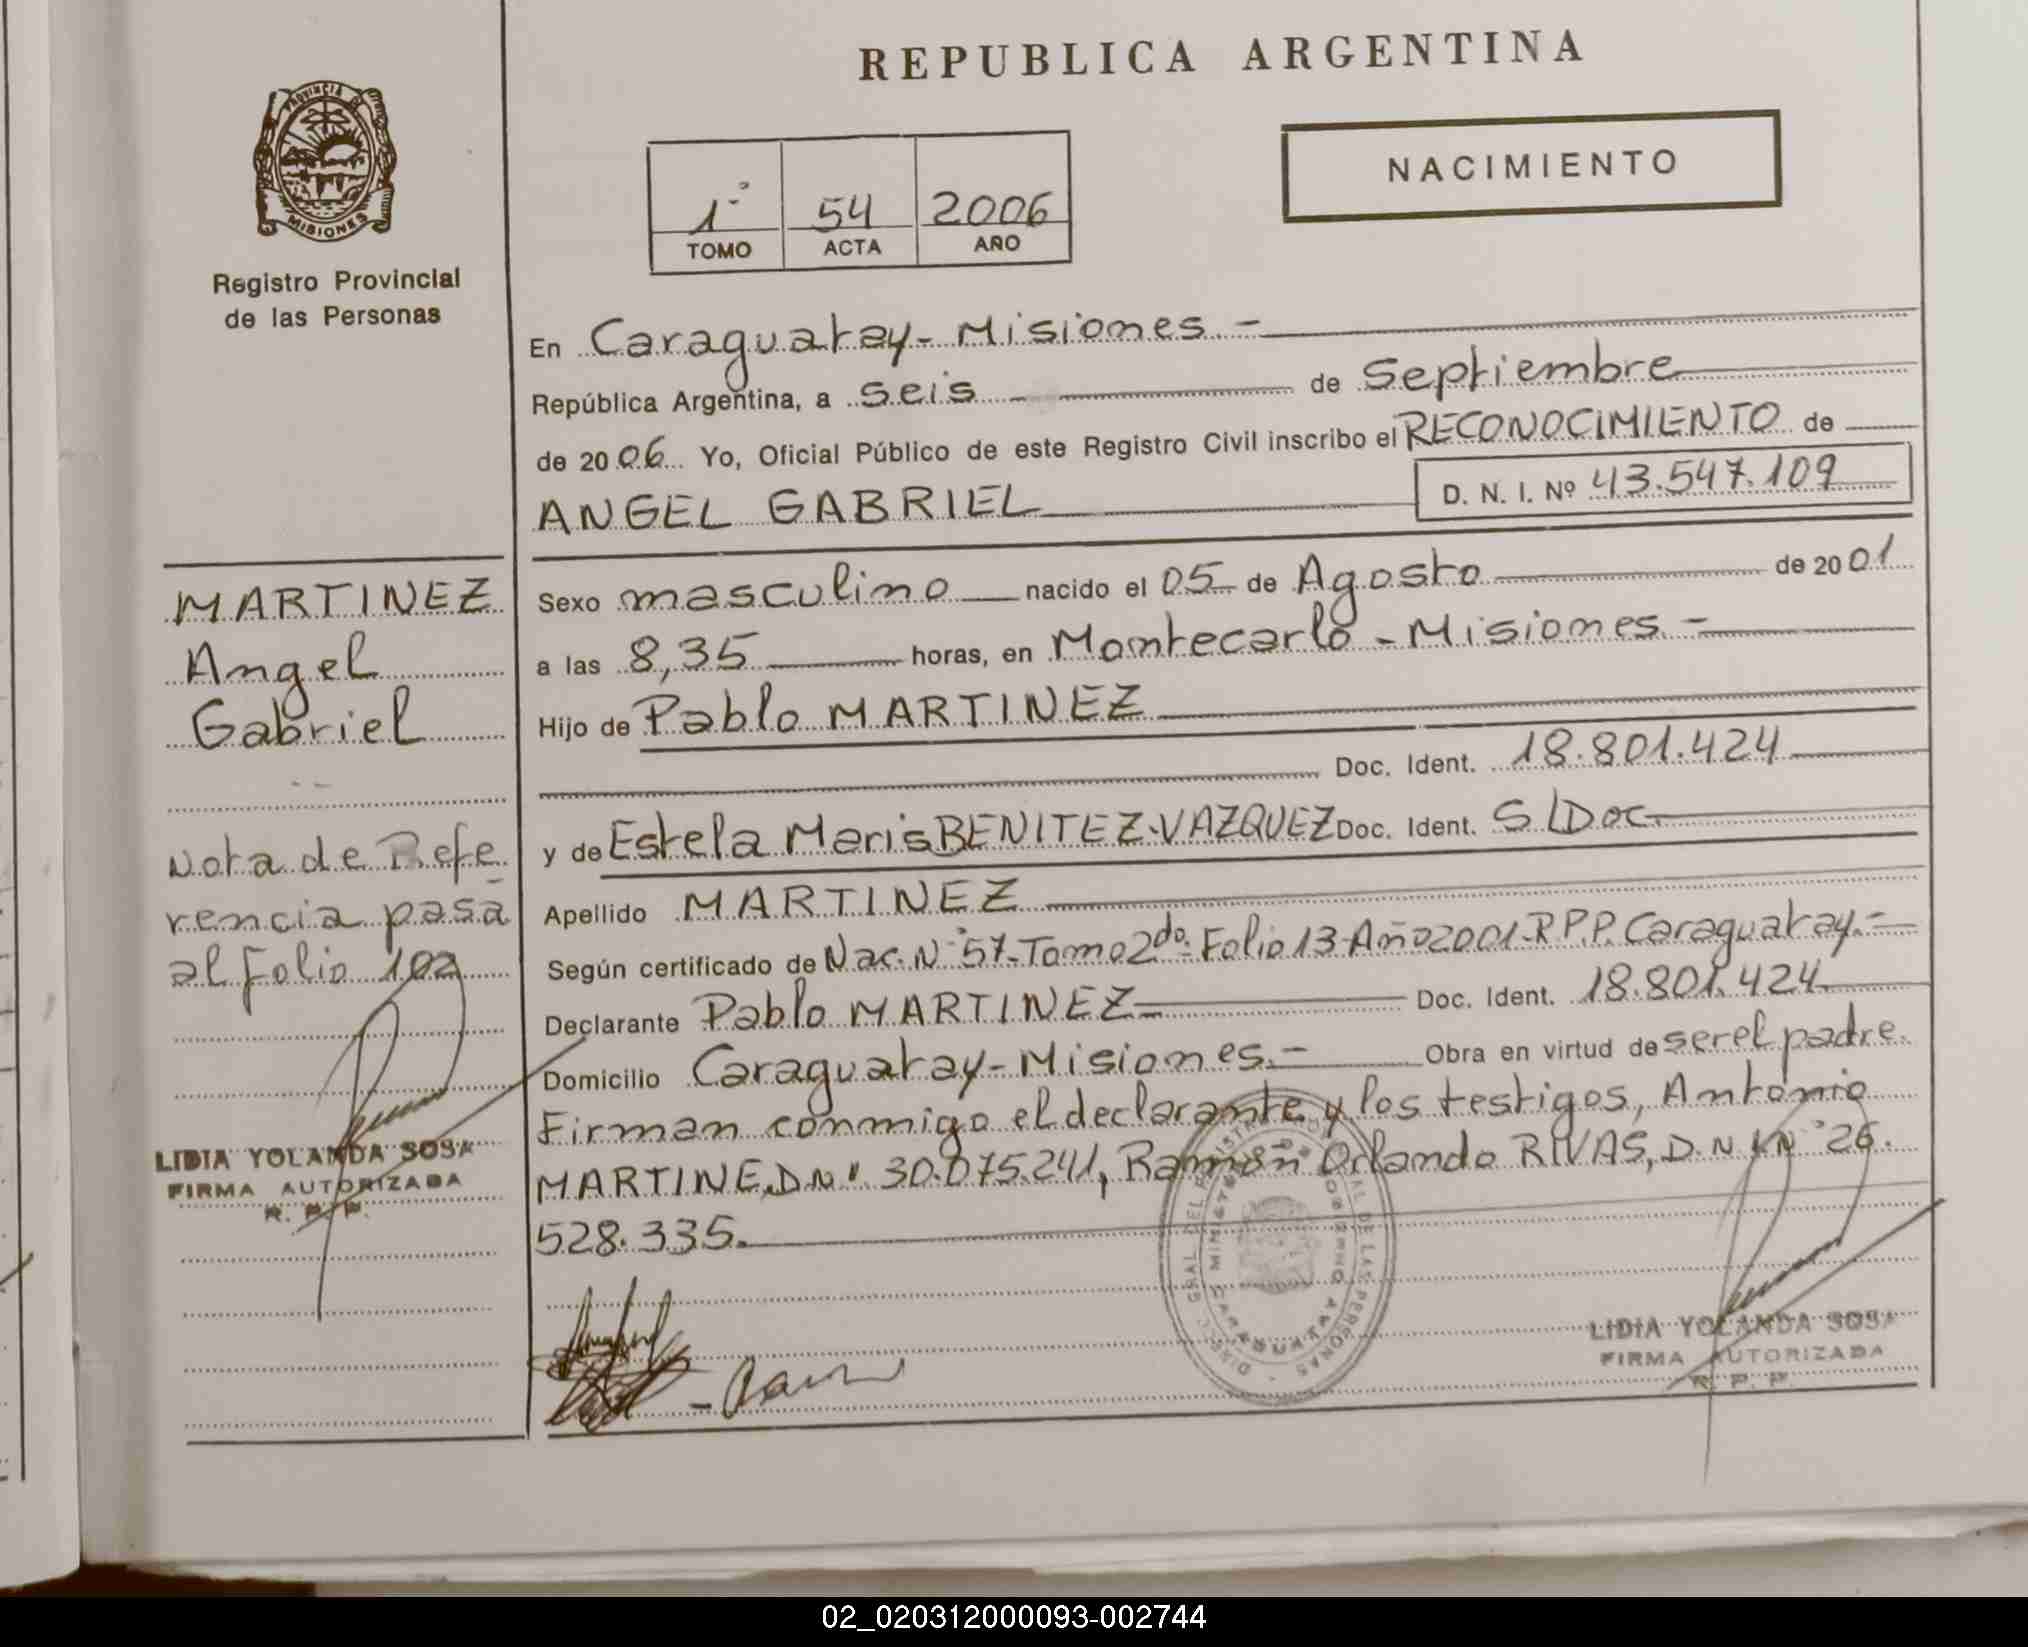 REPUBLICA ARGENTINA
PROVINCIA DE
MISIONES
Registro Provincial
de las Personas
1° 54 2006
TOMO ACTA AÑO
NACIMIENTO
En Caraguatay - Misiones. -
República Argentina, a seis - de Septiembre
de 2006 Yo, Oficial Público de este Registro Civil inscribo el RECONOCIMIENTO de
ANGEL GABRIEL D. N. I. Nº 43.547.109
Sexo masculino nacido el 05 de Agosto de 2001
a las 8,35 horas, en Montecarlo - Misiones. -
Hijo de Pablo MARTINEZ
Doc. Ident. 18.801.424
y de Estela Maris BENITEZ-VAZQUEZ Doc. Ident. S/Doc.
Apellido MARTINEZ
Según certificado de Nac. N° 57-Tomo 2do. Folio 13-Año 2001-R.P.P. Caraguatay. -
Declarante Pablo MARTINEZ Doc. Ident. 18.801.424
Domicilio Caraguatay - Misiones. - Obra en virtud de ser el padre.
Firman conmigo el declarante y los testigos, Antonio
MARTINE, D.N° 30.075.241, Ramón Orlando RIVAS, D.N.I.N° 26.
528.335.
LIDIA YOLANDA SOSA
FIRMA AUTORIZADA
R. P. P.
MARTINEZ
Angel
Gabriel
Nota de Refe
rencia pasa
al folio 102
LIDIA YOLANDA SOSA
FIRMA AUTORIZADA
R. P. P.
02_020312000093-002744